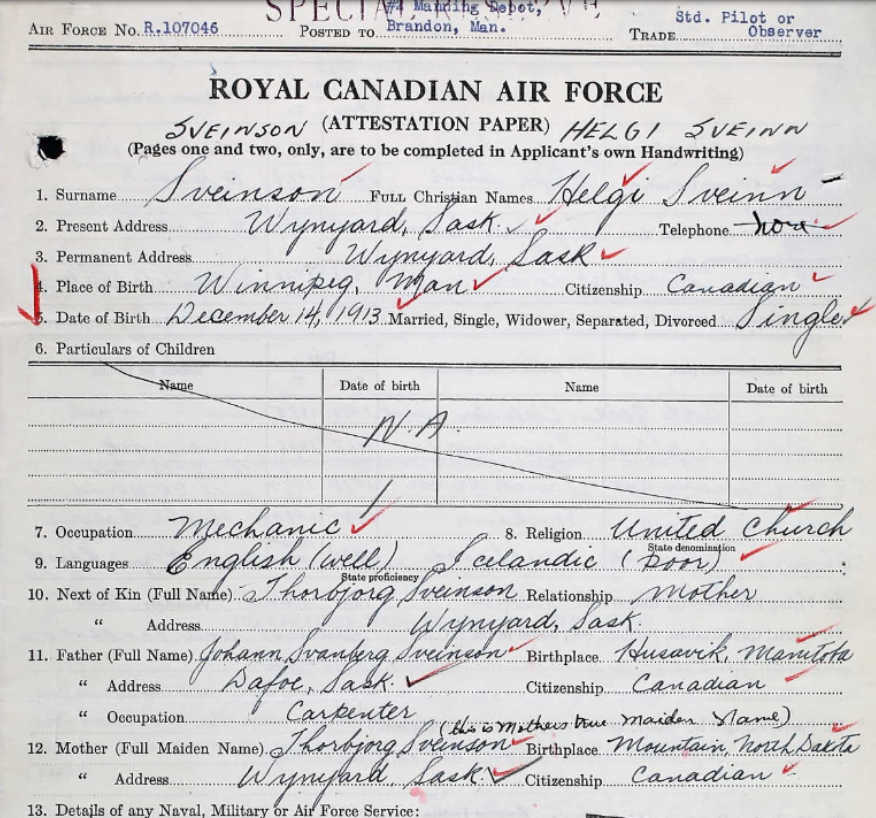 SPECIAL RESERVE
#4 Manning Depot,
Air Force No. R.107046 Posted to Brandon, Man. Trade Std. Pilot or Observer
ROYAL CANADIAN AIR FORCE
SVEINSON (ATTESTATION PAPER) HELGI SVEINN
(Pages one and two, only, are to be completed in Applicant's own Handwriting)
1. Surname Sveinson Full Christian Names Helgi Sveinn
2. Present Address Wynyard, Sask. Telephone none
3. Permanent Address Wynyard, Sask
4. Place of Birth Winnipeg, Man Citizenship Canadian
5. Date of Birth December 14, 1913 Married, Single, Widower, Separated, Divorced Single
6. Particulars of Children
Name Date of birth Name Date of birth
N.A.
7. Occupation Mechanic 8. Religion United Church
State denomination
9. Languages English (well) Icelandic (poor)
State proficiency
10. Next of Kin (Full Name) Thorbjorg Sveinson Relationship Mother
" Address Wynyard, Sask.
11. Father (Full Name) Johann Svanberg Sveinson Birthplace Husavik, Manitoba
" Address Dafoe, Sask. Citizenship Canadian
" Occupation Carpenter
(this is Mothers true Maiden Name)
12. Mother (Full Maiden Name) Thorbjorg Sveinson Birthplace Mountain, North Dakota
" Address Wynyard, Sask. Citizenship Canadian
13. Details of any Naval, Military or Air Force Service: